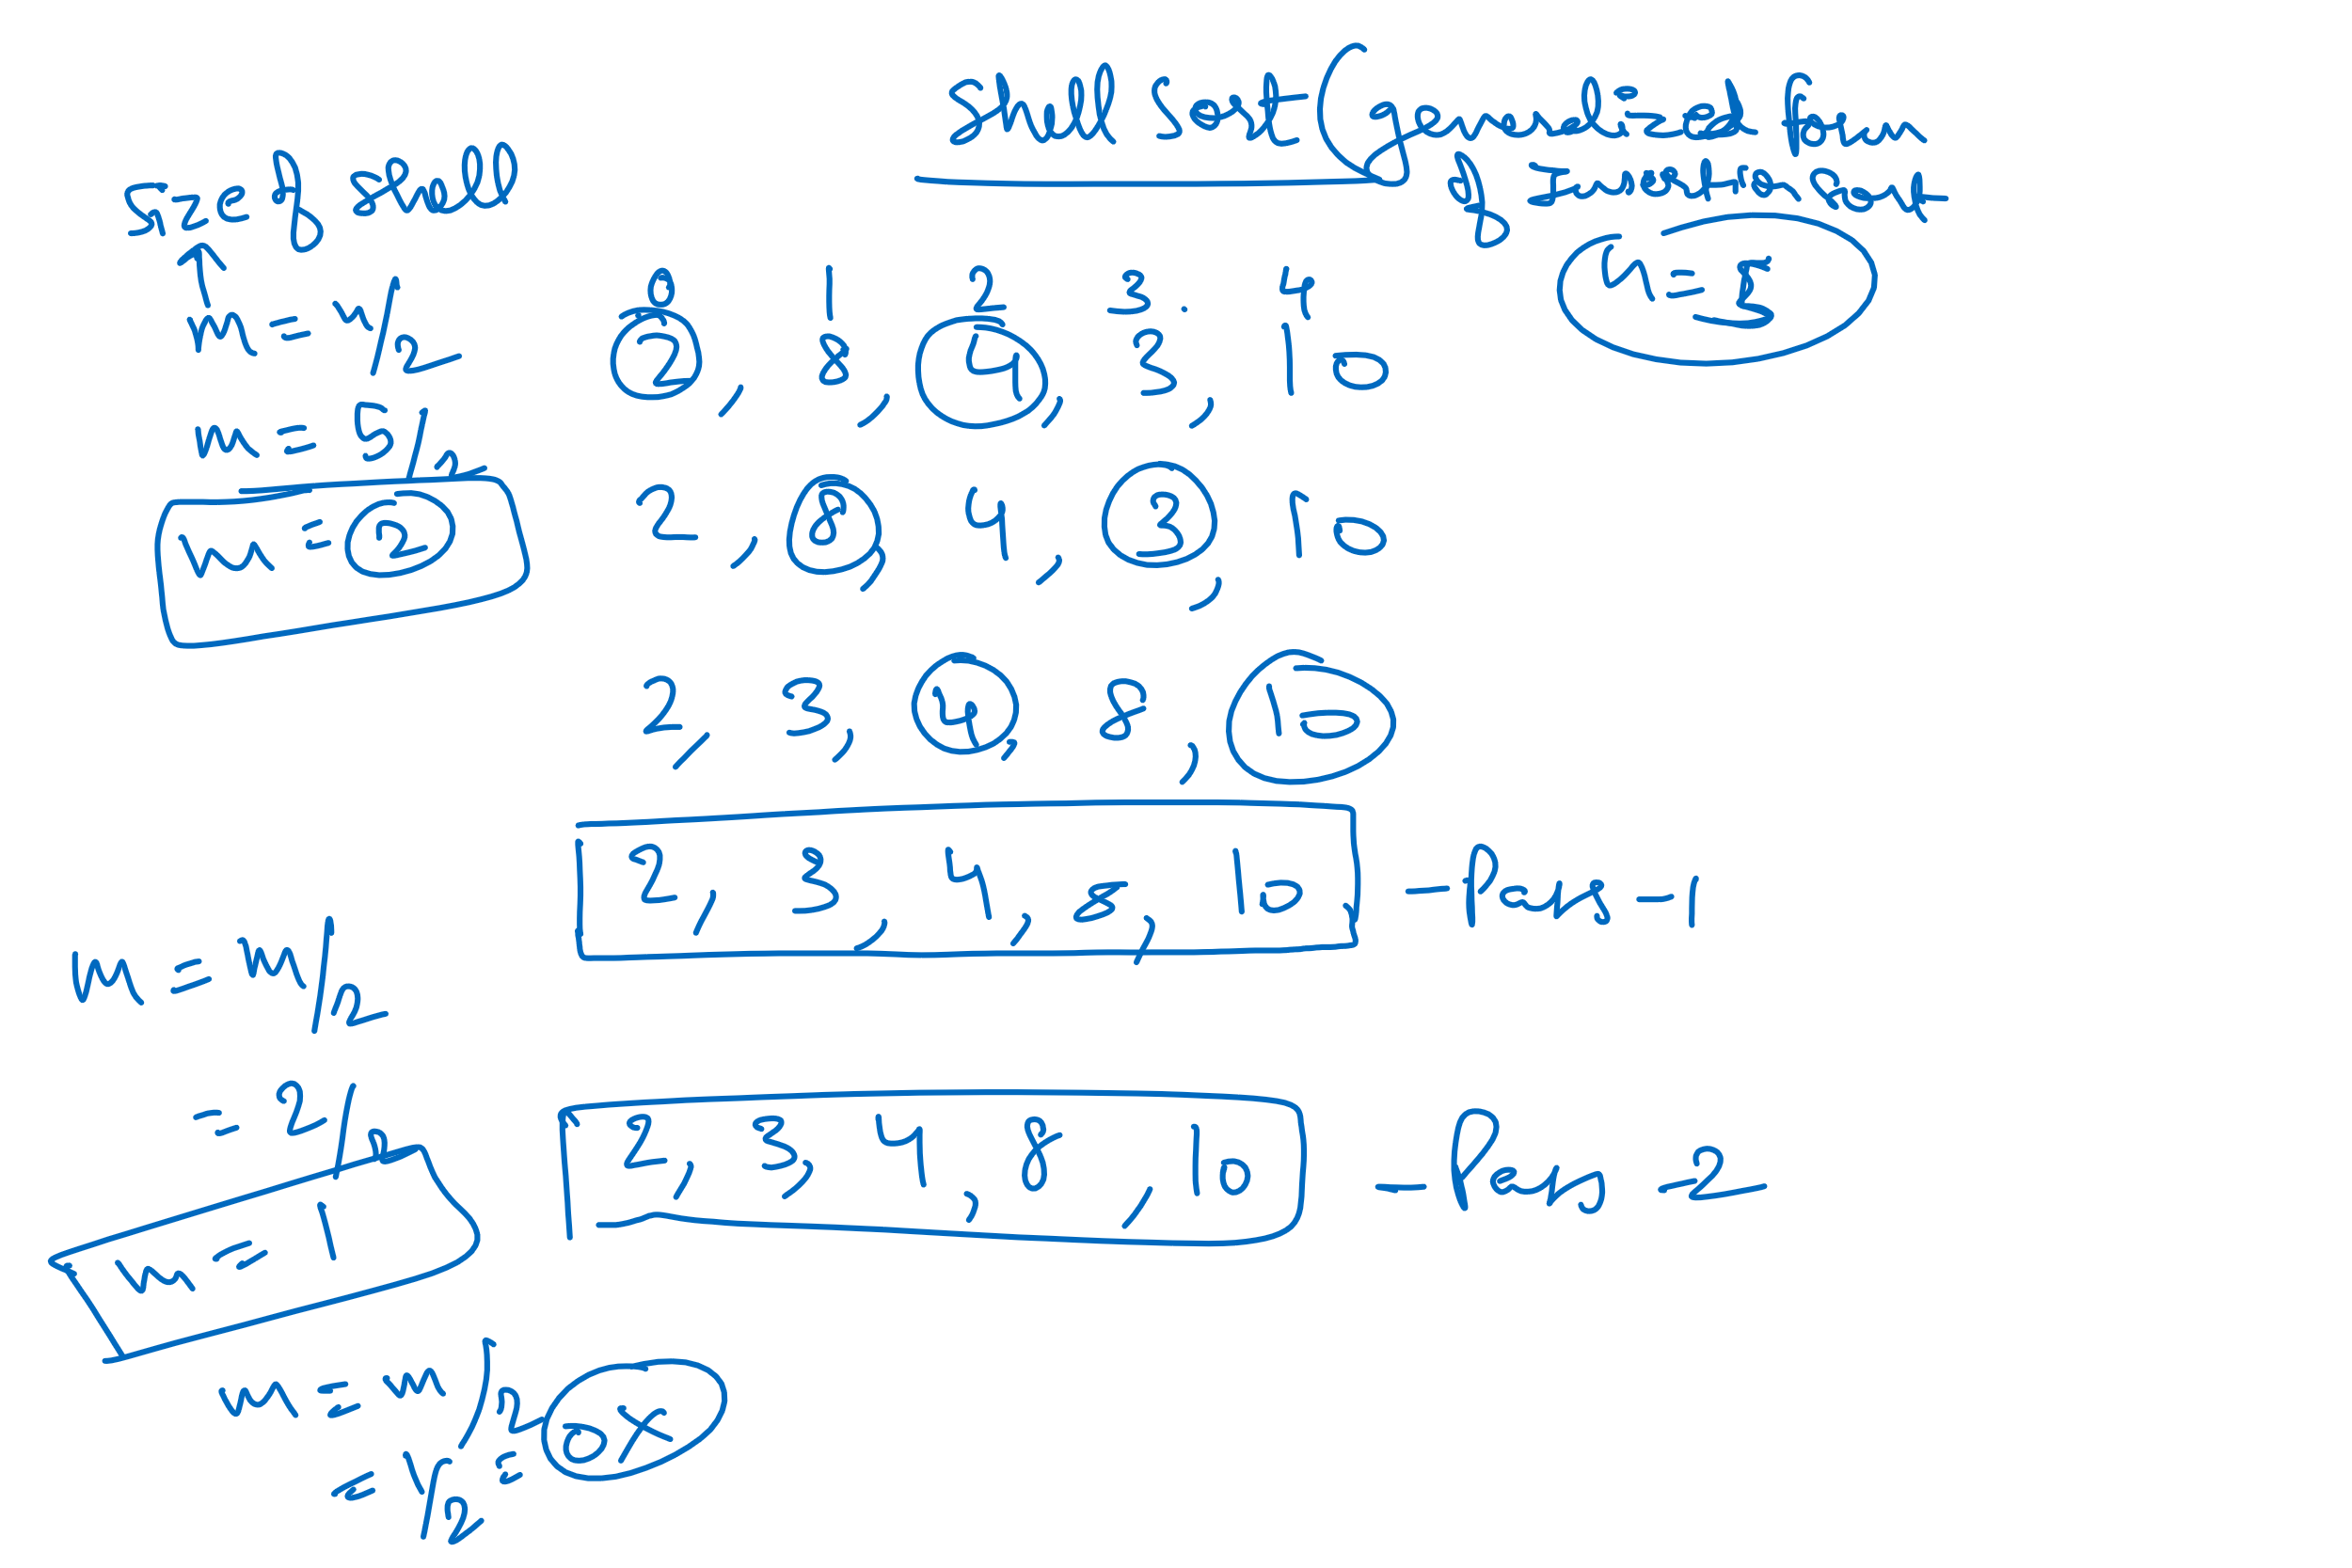 Shell Sort (generalized form
of insertion sort
size of shell
n = 5
0 1 2 3. 4
m = n/2
2, 8, 4, 3, 10
m = 5/2
m = 2
2, 8, 4, 3, 10
2, 3, 4, 8, 10
2, 3, 4, 8, 10 - Pass - 1
m = m/2
= 2/2
2, 3, 4, 8, 10 - Pass 2
m = 1
m = m/2
= 1/2 = 0 X